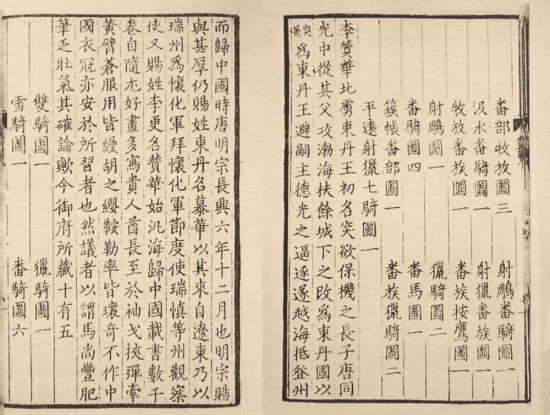 番部牧放圖三　射鵰番騎圖一
汲水番騎圖一　射獵番族圖一
牧放番族圖一　番族按鷹圖一
射鵰圖一　獵騎圖二
番騎圖四　番馬圖一
簇帳番部圖一　番族獵騎圖二
平遠射獵七騎圖一
李贊華北虜東丹王初名突欲保機之長子唐同
光中從其父攻渤海扶餘城下之改為東丹國以
突欲為東丹王避嗣主德光之逼遂越海抵登州
而歸中國時唐明宗長興六年十二月也明宗賜
與甚厚仍賜姓東丹名慕華以其來自遼東乃以
瑞州為懷化軍拜懷化軍節度使瑞慎等州觀察
使又賜姓李更名贊華始汎海歸中國載書數千
卷自隨尤好畫多寫貴人酋長至於袖戈挾彈牽
黃臂蒼服用皆縵胡之纓鞍勒率皆瓌奇不作中
國衣冠亦安於所習者也然議者以謂馬尚豐肥
筆乏壯氣其確論歟今御府所藏十有五
雙騎圖一　獵騎圖一
雪騎圖一　番騎圖六